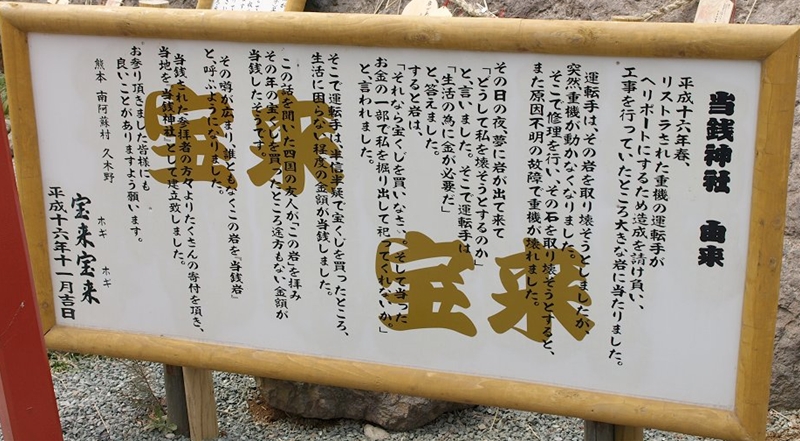 当銭神社　由来
平成十六年春、
リストラされた重機の運転手が
ヘリポートにするため造成を請け負い、
工事を行っていたところ大きな岩に当たりました。
運転手は、その岩を取り壊そうとしましたが、
突然重機が動かなくなりました。
そこで修理を行い、その石を取り壊そうとすると、
また原因不明の故障で重機が壊れました。
その日の夜、夢に岩が出て来て
「どうして私を壊そうとするのか」
と、言いました。そこで運転手は
「生活の為に金が必要だ」
と、答えました。
すると岩は、
「それなら宝くじを買いなさい。そして当った
お金の一部で私を掘り出して祀ってくれないか。」
と、言われました。
そこで運転手は、半信半疑で宝くじを買ったところ、
生活に困らない程度の金額が当銭しました。
この話を聞いた四国の友人が、この岩を拝み
その年の宝くじを買ったところ途方もない金額が
当銭したそうです。
その噂が広まり、誰ともなくこの岩を『当銭岩』
と、呼ぶようになりました。
当銭された参拝者の方々よりたくさんの寄付を頂き、
当地を『当銭神社』として建立致しました。
お参り頂きました皆様にも
良いことがありますよう願います。
熊本　南阿蘇村　久木野
宝来宝来
ホキ　ホキ
平成十六年十一月吉日
宝来
宝来